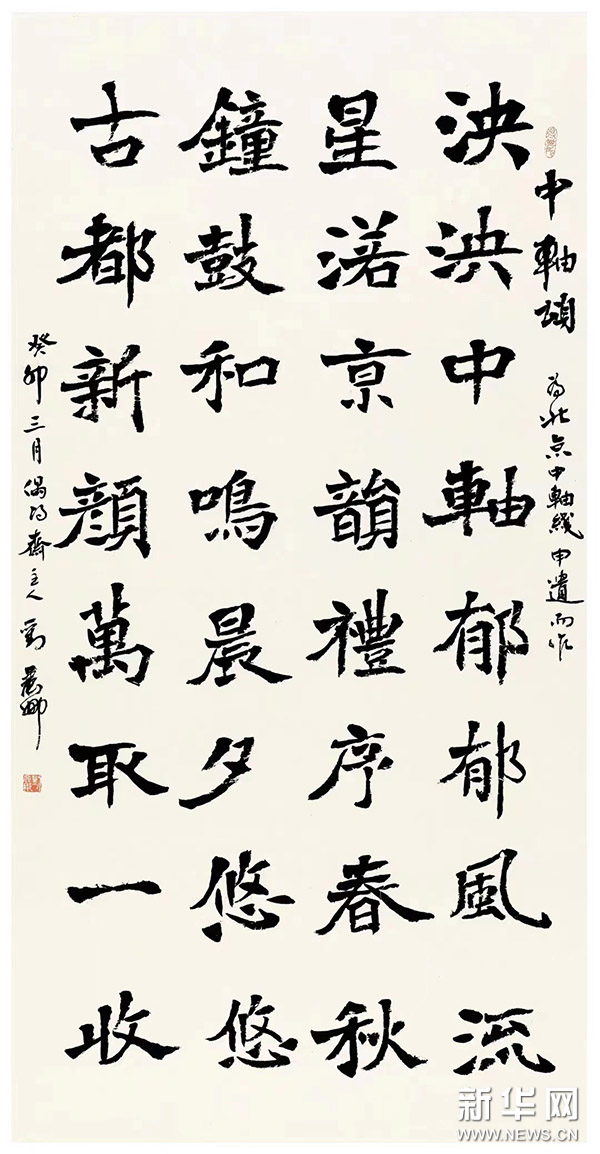 中軸頌 為北京中軸綫申遺而作
泱泱中軸郁郁風流
星渚京韻禮序春秋
鐘鼓和鳴晨夕悠悠
古都新顏萬取一收
癸卯三月偶得齋主人劉
新华网
WWW.NEWS.CN